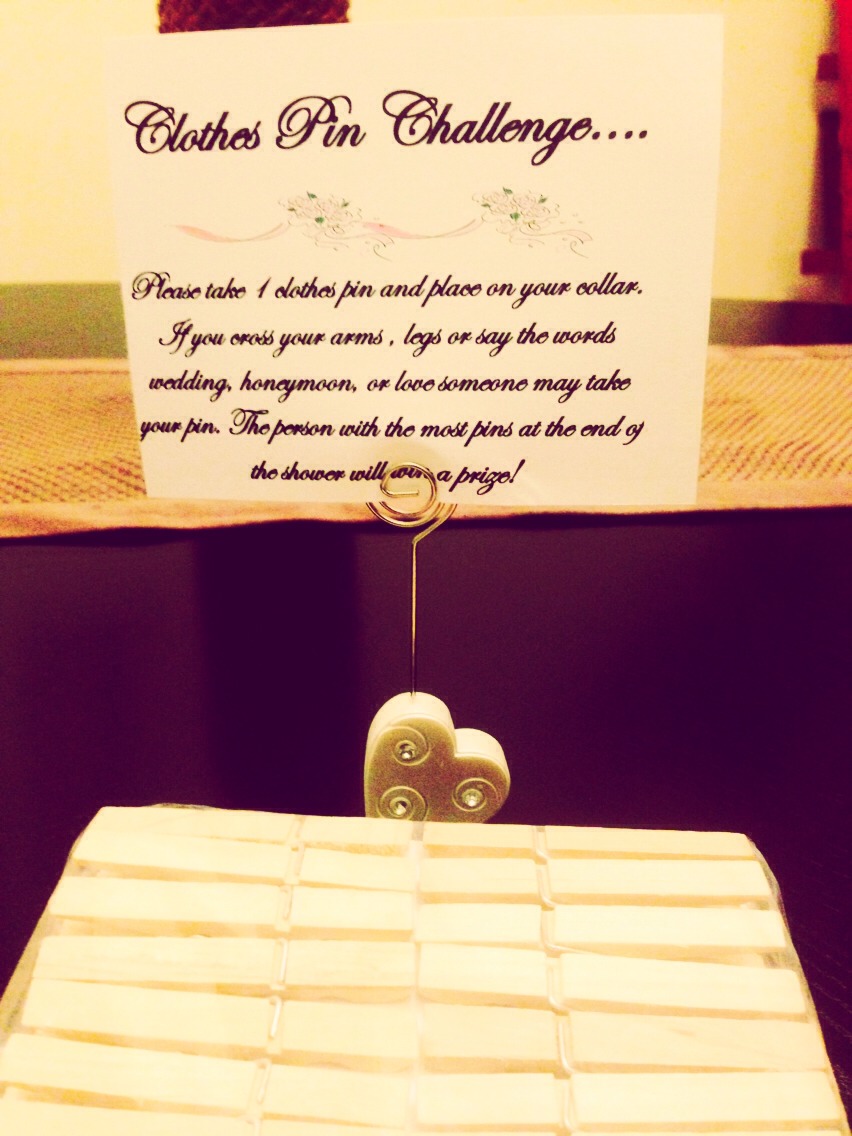 Clothes Pin Challenge....
Please take 1 clothes pin and place on your collar.
If you cross your arms , legs or say the words
wedding, honeymoon, or love someone may take
your pin. The person with the most pins at the end of
the shower will win a prize!